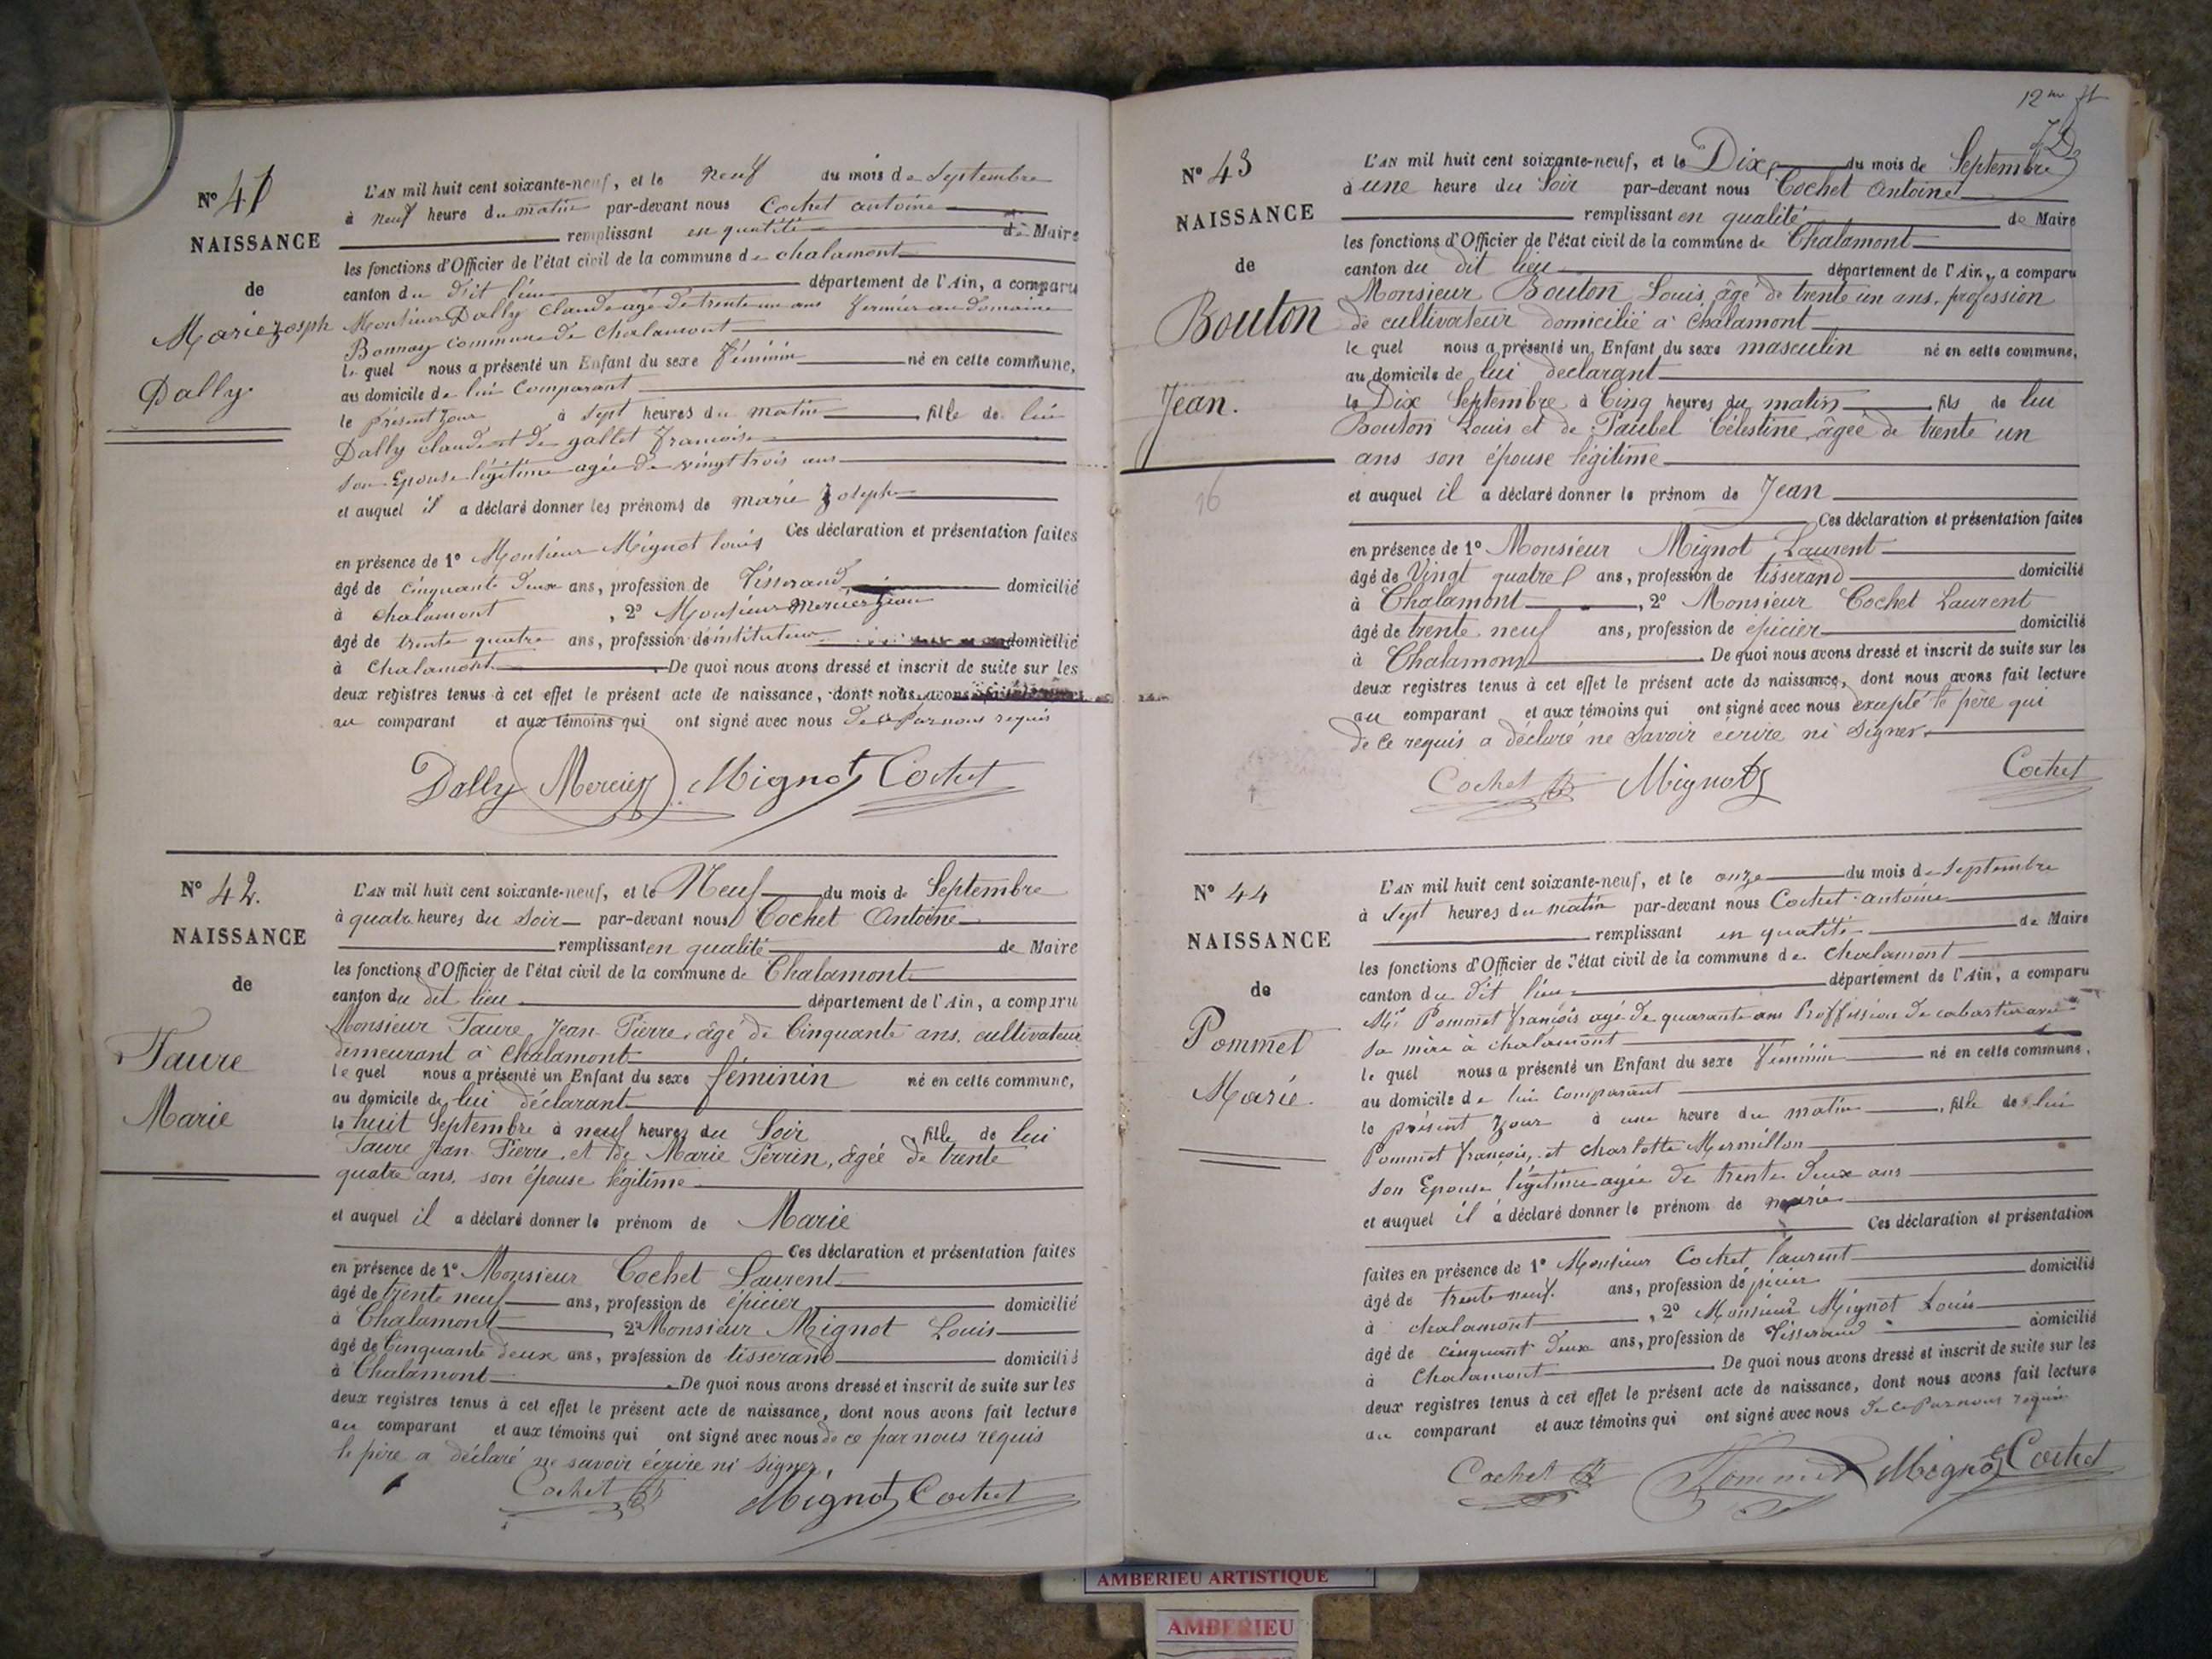 N° 41
NAISSANCE
de
Marie zosph
Dally.
L'AN mil huit cent soixante-neuf, et le neuf du mois de Septembre
à neuf heure du matin par-devant nous Cochet antoine
remplissant en qualité de Maire
les fonctions d'Officier de l'état civil de la commune de chalamont
canton du dit lieu département de l'Ain, a comparu
Monsieur Dally Claude agé de trente un ans fermier au domaine
Bonnay commune de Chalamont
le quel nous a présenté un Enfant du sexe féminin né en cette commune,
au domicile de lui Comparant
le présent jour à sept heures du matin fille de lui
Dally claude et de gallet francoise
son Epouse légitime agée de vingt trois ans
et auquel il a déclaré donner les prénoms de marie Joseph
Ces déclaration et présentation faites
en présence de 1° Monsieur Mignot louis
âgé de cinquante deux ans, profession de tisserand domicilié
à chalamont, 2° Monsieur Mercier jean
âgé de trente quatre ans, profession de instituteur domicilié
à Chalamont. De quoi nous avons dressé et inscrit de suite sur les
deux registres tenus à cet effet le présent acte de naissance, dont nous avons
au comparant et aux témoins qui ont signé avec nous de ce par nous requis
Dally Mercier Mignot Cochet
N° 42.
NAISSANCE
de
Faure
Marie
L'AN mil huit cent soixante-neuf, et le Neuf du mois de Septembre
à quatre heures du Soir par-devant nous Cochet Antoine
remplissant en qualité de Maire
les fonctions d'Officier de l'état civil de la commune de Chalamont
canton du dit lieu département de l'Ain, a comparu
Monsieur Faure Jean Pierre, âgé de Cinquante ans, cultivateur
demeurant à Chalamont
le quel nous a présenté un Enfant du sexe féminin né en cette commune,
au domicile de lui déclarant
le huit Septembre à neuf heures du Soir fille de lui
Faure Jean Pierre, et de Marie Perrin, âgée de trente
quatre ans, son épouse légitime
et auquel il a déclaré donner le prénom de Marie
Ces déclaration et présentation faites
en présence de 1° Monsieur Cochet Laurent
âgé de trente neuf ans, profession de épicier domicilié
à Chalamont, 2° Monsieur Mignot Louis
âgé de Cinquante deux ans, profession de tisserand domicilié
à Chalamont. De quoi nous avons dressé et inscrit de suite sur les
deux registres tenus à cet effet le présent acte de naissance, dont nous avons fait lecture
au comparant et aux témoins qui ont signé avec nous de ce par nous requis
le père a déclaré ne savoir écrire ni signer.
Cochet Mignot Cochet
12me
N° 43
NAISSANCE
de
Bouton
Jean.
16
L'AN mil huit cent soixante-neuf, et le Dix du mois de Septembre
à une heure du Soir par-devant nous Cochet Antoine
remplissant en qualité de Maire
les fonctions d'Officier de l'état civil de la commune de Chalamont
canton du dit lieu département de l'Ain, a comparu
Monsieur Bouton Louis, âgé de trente un ans, profession
de cultivateur domicilié à Chalamont
le quel nous a présenté un Enfant du sexe masculin né en cette commune,
au domicile de lui déclarant
le Dix Septembre à Cinq heures du matin fils de lui
Bouton Louis et de Paubel Célestine, âgée de trente un
ans son épouse légitime
et auquel il a déclaré donner le prénom de Jean
Ces déclaration et présentation faites
en présence de 1° Monsieur Mignot Laurent
âgé de Vingt quatre ans, profession de tisserand domicilié
à Chalamont, 2° Monsieur Cochet Laurent
âgé de trente neuf ans, profession de épicier domicilié
à Chalamont. De quoi nous avons dressé et inscrit de suite sur les
deux registres tenus à cet effet le présent acte de naissance, dont nous avons fait lecture
au comparant et aux témoins qui ont signé avec nous excepté le père qui
de ce requis a déclaré ne savoir écrire ni signer.
Cochet Mignot Cochet
N° 44
NAISSANCE
de
Pommet
Marie.
L'AN mil huit cent soixante-neuf, et le onze du mois de Septembre
à sept heures du matin par-devant nous Cochet antoine
remplissant en qualité de Maire
les fonctions d'Officier de l'état civil de la commune de chalamont
canton du dit lieu département de l'Ain, a comparu
Mr Pommet françois agé de quarante ans Proffession de cabartier avec
sa mère à chalamont
le quel nous a présenté un Enfant du sexe féminin né en cette commune,
au domicile de lui comparant
le présent jour à une heure du matin, fille de lui
Pommet françois, et charlotte Mermillon
son Epouse légitime agée de trente deux ans
et auquel il a déclaré donner le prénom de marie
Ces déclaration et présentation
faites en présence de 1° Monsieur Cochet laurent
âgé de trente neuf ans, profession dépicier domicilié
à chalamont, 2° Monsieur Mignot Louis
âgé de cinquant deux ans, profession de tisserand domicilié
à Chalamont. De quoi nous avons dressé et inscrit de suite sur les
deux registres tenus à cet effet le présent acte de naissance, dont nous avons fait lecture
au comparant et aux témoins qui ont signé avec nous de ce par nous requis
Cochet Pommet Mignot Cochet
AMBERIEU ARTISTIQUE
AMBERIEU